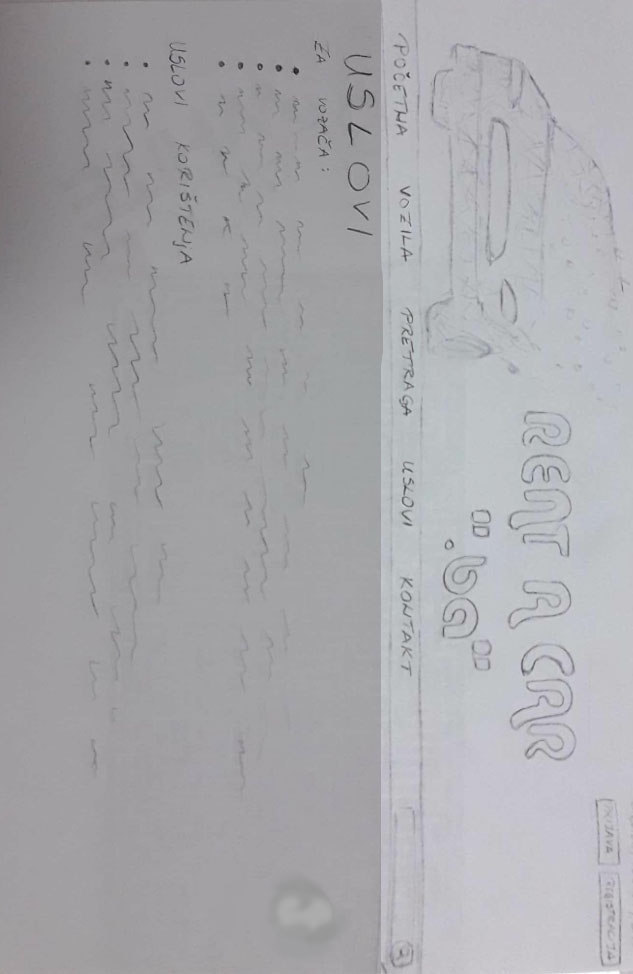 PRIJAVA REGISTRACIJA
RENT A CAR
".ba"
POČETNA VOZILA PRETRAGA USLOVI KONTAKT
USLOVI
ZA VOZAČA:
USLOVI KORIŠTENJA